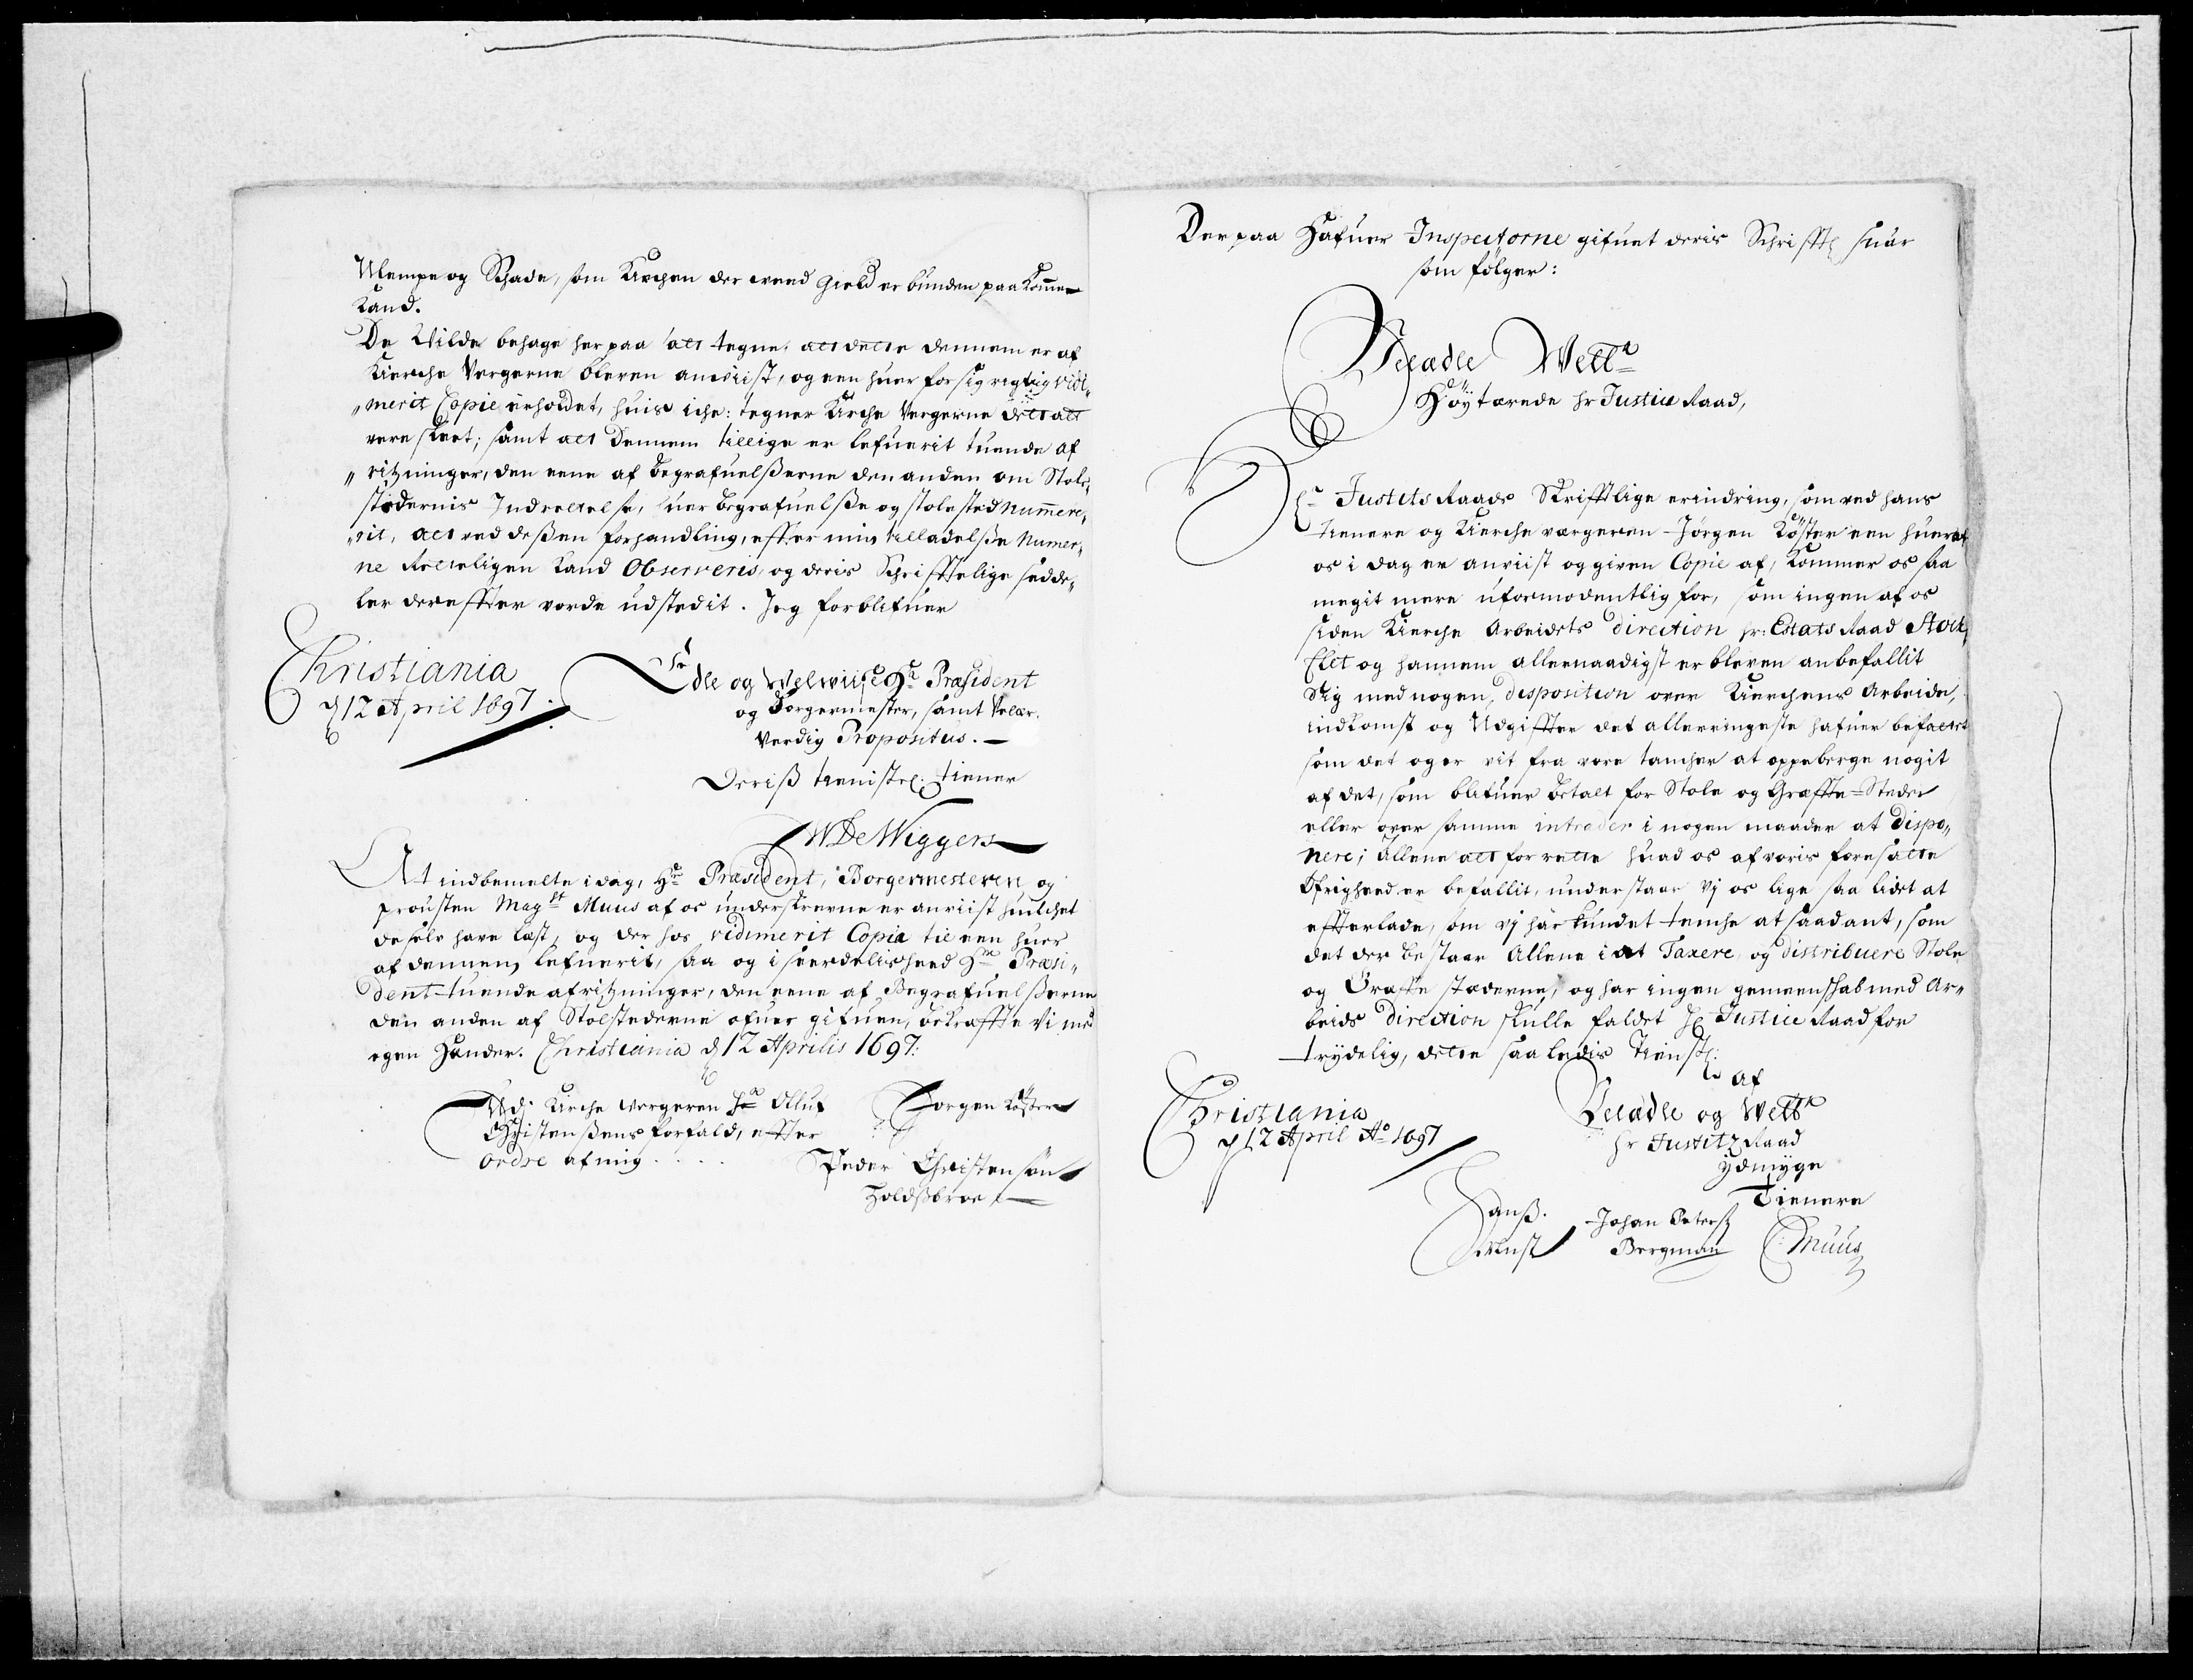 Ulempe og Schade, som Kirchen der med Gield er bunden paa komme
kand.
De Wilde behage her paa att tegne, att dette dennem er af
Kierche Vergerne bleven anviist, og een huer for sig rigtig vidi„
„merit Copie erholdet, huis iche: tegner Kirche Vergerne dett att
vere skeet; samt att dennem tillige er lefuerit tuende af
„ ritzninger, den eene af begrafuelßerne den anden om Stole„
stedernis Indrettelse, huer begrafuelße og stolested Nummere„
„rit, att ved deßen forhandling, effter min tilladelße Numer„
ne Retteligen kand Observeris, og deris Schrifftelige sedde„
ler dereffter vorde udstedit. Jeg forblifuer
Christiania
d 12 April 1697.
Edle og Velwiise Hr Præsident
og Borgermester, samt Velær„
Verdig Propositus.
Deriß tienistl. tiener
W De Wiggers
At indbemelte i dag, Hr Præsident, Borgermesteren og
prousten Magst Muus af os underskrevne er anviist huilchet
de selv have læst, og der hos vidimerit Copia til een huer
af dennem lefuerit, saa og i særdelished Hr Præsi„
dent tuende afritzninger, den eene af Begrafuelßerne
den anden af Stolstederne ofuer gifuen, bekreffte Vi med
egen Hænder. Christiania d 12 Aprilis 1697:
Udj Kirche vergeren Sr Olluf
Christenßens forfald, effter
ordre af mig . . . .
Jørgen Køster
Peder Christensøn
Holdßbroe
Der paa Hafuer Inspectorne gifuet deris Schrifftl suar
som følger:
Veladle Welbr
Høytærede hr Justice Raad,
Hr Justits Raads Skrifftlige erindring, som ved hans
tienere og Kierche værgeren Jørgen Køster een huer af
os i dag er anviist og given Copie af, kommer os saa
megit mere uformodentlig for, som ingen af os
siden Kierche Arbeidets direction hr: Estats Raad Stock„
flet og hannem allernaadigst er bleven anbefallit
sig med nogen disposition over Kierchens Arbeide,
indkomst og Udgiffter det allerringeste hafuer befattet
som det og er vit fra vore tancher at oppeberge nogit
af det, som blifuer betalt for Stole og Graffte-Steder
eller over samme intrader i nogen maader at dispo„
nere; Allene att forrette huad os af voris foresatte
Øfrighed er befallit, understaar vj os lige saa lidet at
effterlade, som vj har kundet tenche at saadant, som
det der bestaar Allene i at Taxere, og distribuere Stole
og Graffte stæderne, og har ingen gemeenskab med Ar„
beids direction skulle faldet Hr Justice Raad for
trydelig, dette saaledis Tienstl.
af
Veladle og Welbr
hr Justitz Raad
ydmyge
Tienere
Christiania
d 12 April Ao 1697
Hanß.
Ernst
Johan Peters
Bergman
C: Muus